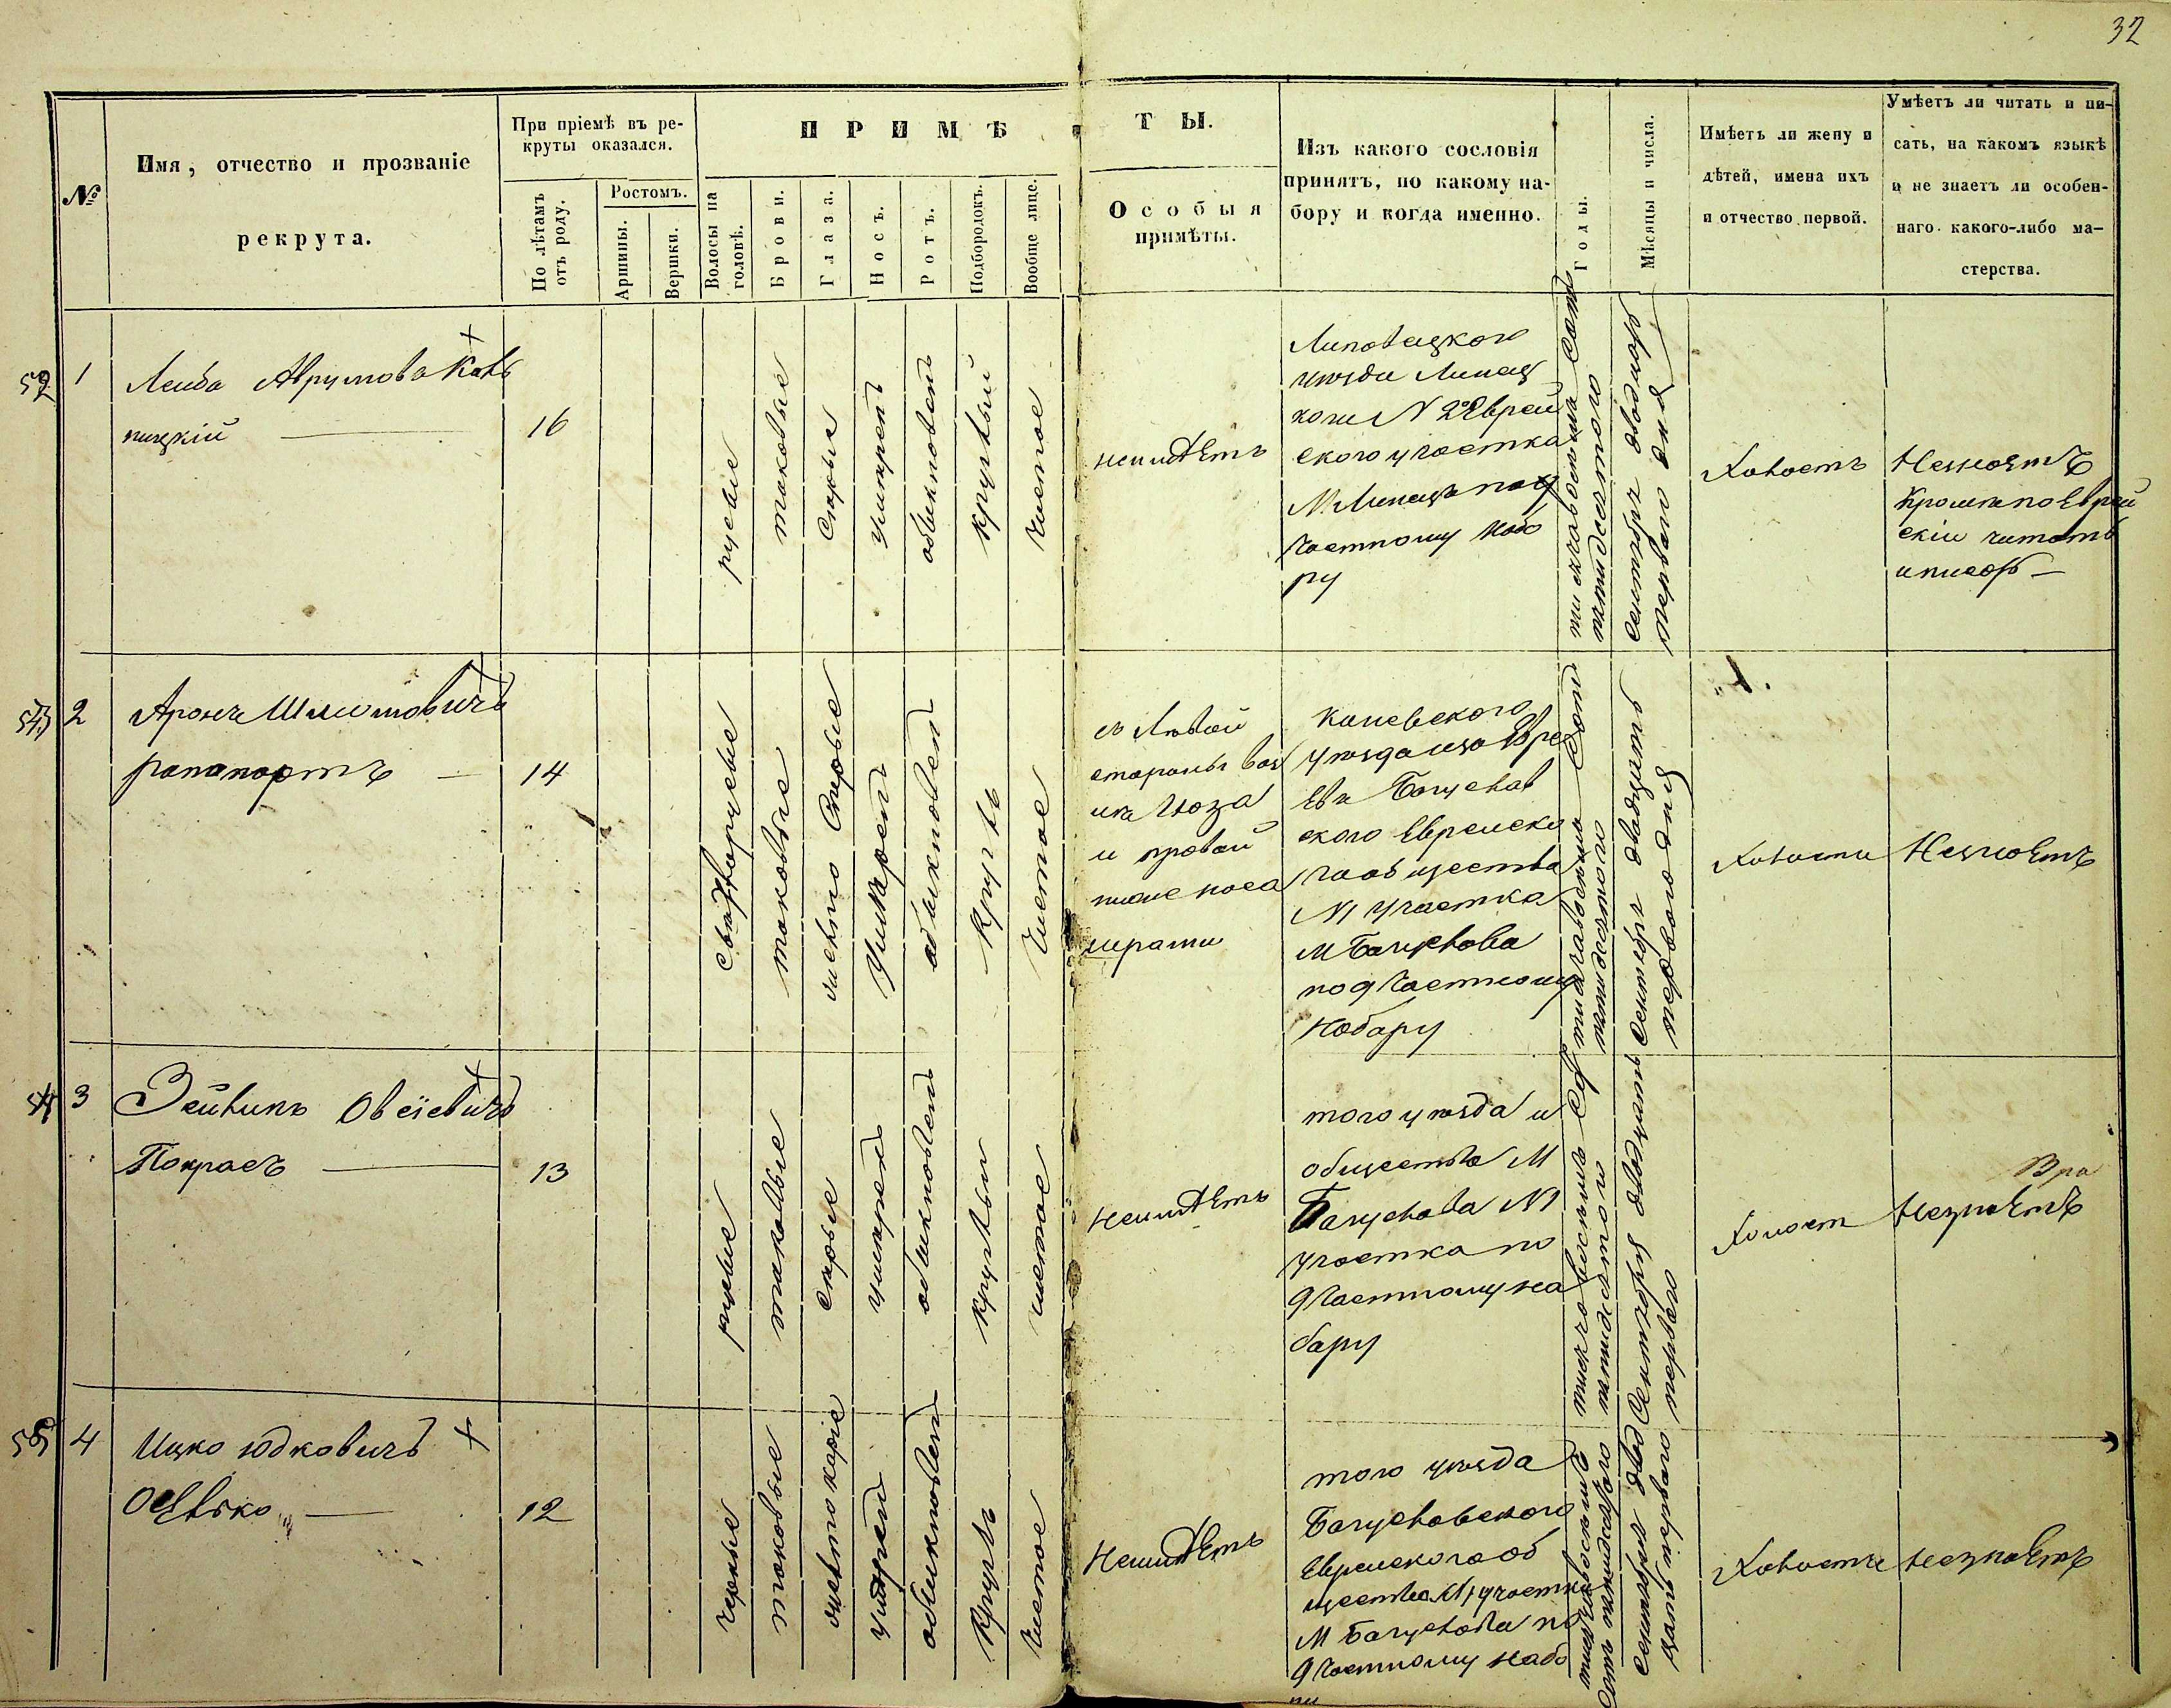 32
№
Имя, отчество и прозваніе
рекрута.
При пріемѣ въ ре-
круты оказался.
По лѣтамъ
отъ роду.
Ростомъ.
Аршины.
Вершки.
ПРИМѢ
ТЫ.
Волосы на
головѣ.
Брови.
Глаза.
Носъ.
Ротъ.
Подбородокъ.
Вообще лице.
Особыя
примѣты.
Изъ какого сословія
принятъ, по какому на-
бору и когда именно.
Годы.
Мѣсяцы и числа.
Имѣетъ ли жену и
дѣтей, имена ихъ
и отчество первой.
Умѣетъ ли читать и пи-
сать, на какомъ языкѣ
и не знаетъ ли особен-
наго какого-либо ма-
стерства.
52
1
Лейба Аврумовъ
пицкій
16
русые
таковые
серые
умѣренъ
обыкновенъ
круглый
чистое
неимѣетъ
Липовецкого
уѣзда Линец
кого N 2 Еврей
ского участка
М. Линецъ по 9
частному набо
ру
тысяча восемьсотъ
пятидесятого
сентября двадцать
перваго дня
Холостъ
Незнаетъ
Кромѣ по Еврей
скiи читать
и писать
53
2
Аронъ Шлиомовичъ
рапапортъ
14
светлорусые
таковые
светло серые
умѣренъ
обыкновен
круглъ
чистое
съ лѣвой
стороны
глаза
и правой
ниже носа
шрамы
Каневского
уѣзда изъ Евре
евъ Богуслав
ского Еврейско
го общества
N1 участка
М Богуслава
по 9 частному
набору
тысяча восемьсотъ
пятидесятого
сентября двадцать
перваго дня
Холостъ
Незнаетъ
54
3
Зейликъ Овсіевичъ
Покрасъ
13
русые
таковые
серые
умѣрен
обыкновен
круглый
чистое
Неимѣетъ
того уѣзда и
общества М
Богуслава N1
участка по
9 частному на
бору
тысяча восемьсотъ
пятидесятого
Сентября двадцать
перваго
Холост
Незнаетъ
55
4
Ицко Юдковичъ
12
черные
таковые
светло карiе
умѣрен
обыкновен
круглъ
чистое
Неимѣетъ
того уѣзда
Богуславского
Еврейского об
щества N1 участка
М Богуслава по
9 частному набо
ру
тысяча восемьсотъ
пятидесятого
Сентября двад
цать перваго
Холостъ
незнаетъ